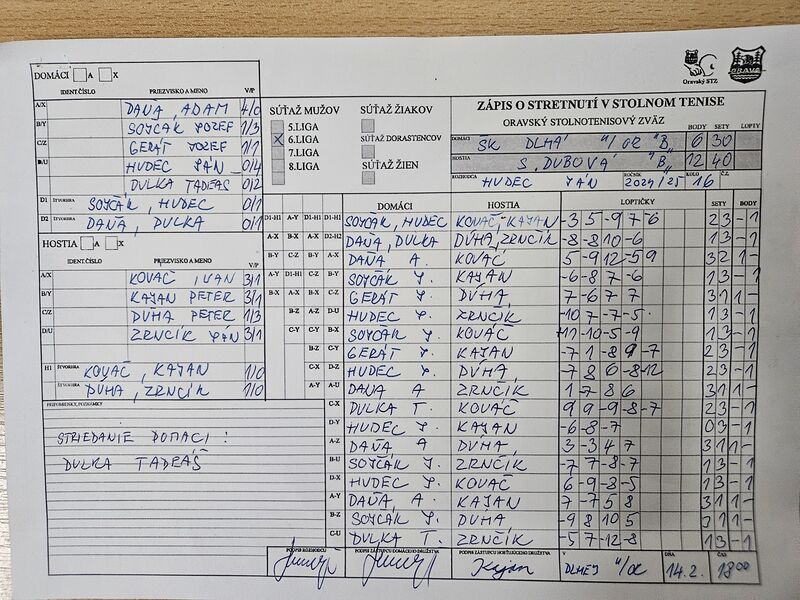 Oravský STZ
ORAVA
DOMÁCI A X
IDENT.ČÍSLO PRIEZVISKO A MENO V/P
A/X DAŇA, ADAM 4/0
B/Y SOJČÁK JOZEF 1/3
C/Z GERÁT JOZEF 1/1
D/U HUDEC JÁN 0/4
DULKA TADEÁŠ 0/2
D1 ŠTVORHRA SOJČÁK, HUDEC 0/1
D2 ŠTVORHRA DAŇA, DULKA 0/1
HOSTIA A X
IDENT.ČÍSLO PRIEZVISKO A MENO V/P
A/X KOVAČ, IVAN 3/1
B/Y KAJAN PETER 3/1
C/Z DVHA PETER 1/3
D/U ZRNČÍK JÁN 3/1
H1 ŠTVORHRA KOVAČ, KAJAN 1/0
DVHA, ZRNČÍK 1/0
PRIPOMIENKY, POZNÁMKY
STRIEDANIE DOMACI:
DULKA TADEÁŠ
SÚŤAŽ MUŽOV
5.LIGA
X 6.LIGA
7.LIGA
8.LIGA
SÚŤAŽ ŽIAKOV
SÚŤAŽ DORASTENCOV
SÚŤAŽ ŽIEN
ZÁPIS O STRETNUTÍ V STOLNOM TENISE
ORAVSKÝ STOLNOTENISOVÝ ZVÄZ
BODY SETY LOPTY
DOMÁCI ŠK DLHÁ n/OR "B" 6 30
HOSTIA S. DUBOVÁ "B" 12 40
ROZHODCA HUDEC JÁN ROČNÍK 2024/25 KOLO 16 Č.Z.
DOMÁCI HOSTIA LOPTIČKY SETY BODY
D1-H1 A-Y D1-H1 D1-H1 SOJČÁK, HUDEC KOVAČ, KAJAN -3 5 -9 7 -6 2 3 -1
A-X B-X A-X D2-H2 DAŇA, DULKA DVHA, ZRNČÍK -8 -8 10 -6 1 3 -1
B-Y C-Z B-Y A-X DAŇA A. KOVAČ 5 -9 12 -5 9 3 2 1 -
A-Y D1-H1 C-Z B-Y SOJČÁK J. KAJAN -6 -8 7 -6 1 3 -1
B-X A-X A-Y C-Z GERÁT J. DVHA 7 -6 7 7 3 1 1 -
B-X A-Z D-U HUDEC J. ZRNČÍK -10 7 -7 -5 1 3 -1
C-Y B-X SOJČÁK J. KOVAČ -11 -10 5 -9 1 3 -1
B-Z C-Y GERÁT J. KAJAN -7 1 -8 9 -7 2 3 -1
C-X D-Z HUDEC J. DVHA -7 8 6 -8 -12 2 3 -1
A-Y A-U DAŇA A ZRNČÍK 1 -7 8 6 3 1 1 -
C-X DULKA T. KOVAČ 9 9 -9 -8 -7 2 3 -1
D-Y HUDEC J. KAJAN -6 -8 -7 0 3 -1
A-Z DAŇA A DVHA 3 -3 4 7 3 1 1 -
B-U SOJČÁK J. ZRNČÍK -7 7 -8 -7 1 3 -1
D-X HUDEC J. KOVAČ 6 -9 -8 -5 1 3 -1
A-Y DAŇA, A. KAJAN 7 -7 5 8 3 1 1 -
B-Z SOJČÁK J. DVHA -9 8 10 5 3 1 1 -
C-U DULKA T. ZRNČÍK -5 7 -12 -8 1 3 -1
PODPIS ROZHODCU PODPIS ZÁSTUPCU DOMÁCEHO DRUŽSTVA PODPIS ZÁSTUPCU HOSŤUJÚCEHO DRUŽSTVA Kajan V DLHEJ n/OR DŇA 14.2. ČAS 18 00